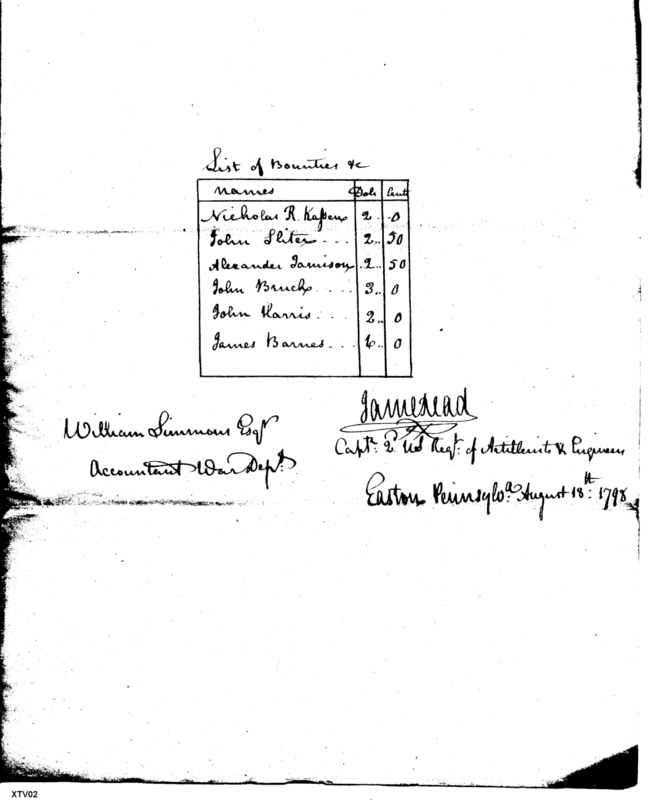 List of Bounties &c
Names Dols Cents
Nicholas R. 2.. 0
John Sliter - - - 2.. 50
Alexander Jamison 2.. 50
John Bruch . . . . 3.. 0
John Harris . . . . 2.. 0
James Barnes . . . 6.. 0
William Simmons Esqr
Accountant War Dept.
James Read
Capt. 2d. US Regt. of Artillerist & Engineers
Easton Pennsylva. August 18th. 1798
XTV02